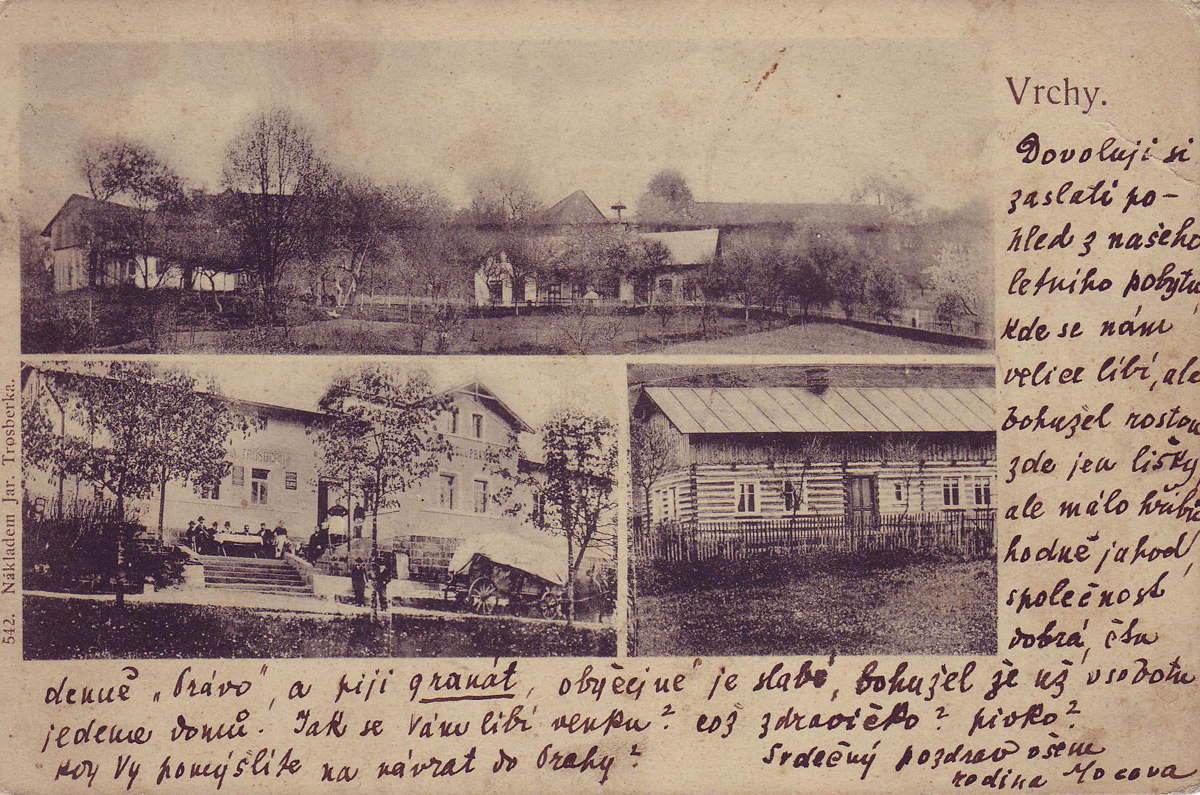 Vrchy.
Dovoluji si
zaslati po-
hled z našeho
letního pobytu
kde se nám
velice líbí, ale
bohužel rostou
zde jen lišky
ale málo hřibů
hodně jahod,
společnost
dobrá, čtu
denně „Právo", a piji granát, obyčejně je slabé, bohužel že už v sobotu
jedeme domů. Jak se Vám líbí venku? což zdravíčko? pivko?
kdy Vy pomýšlíte na návrat do Prahy?
Srdečný pozdrav všem
rodina
542. Nákladem Jar. Trosberka.